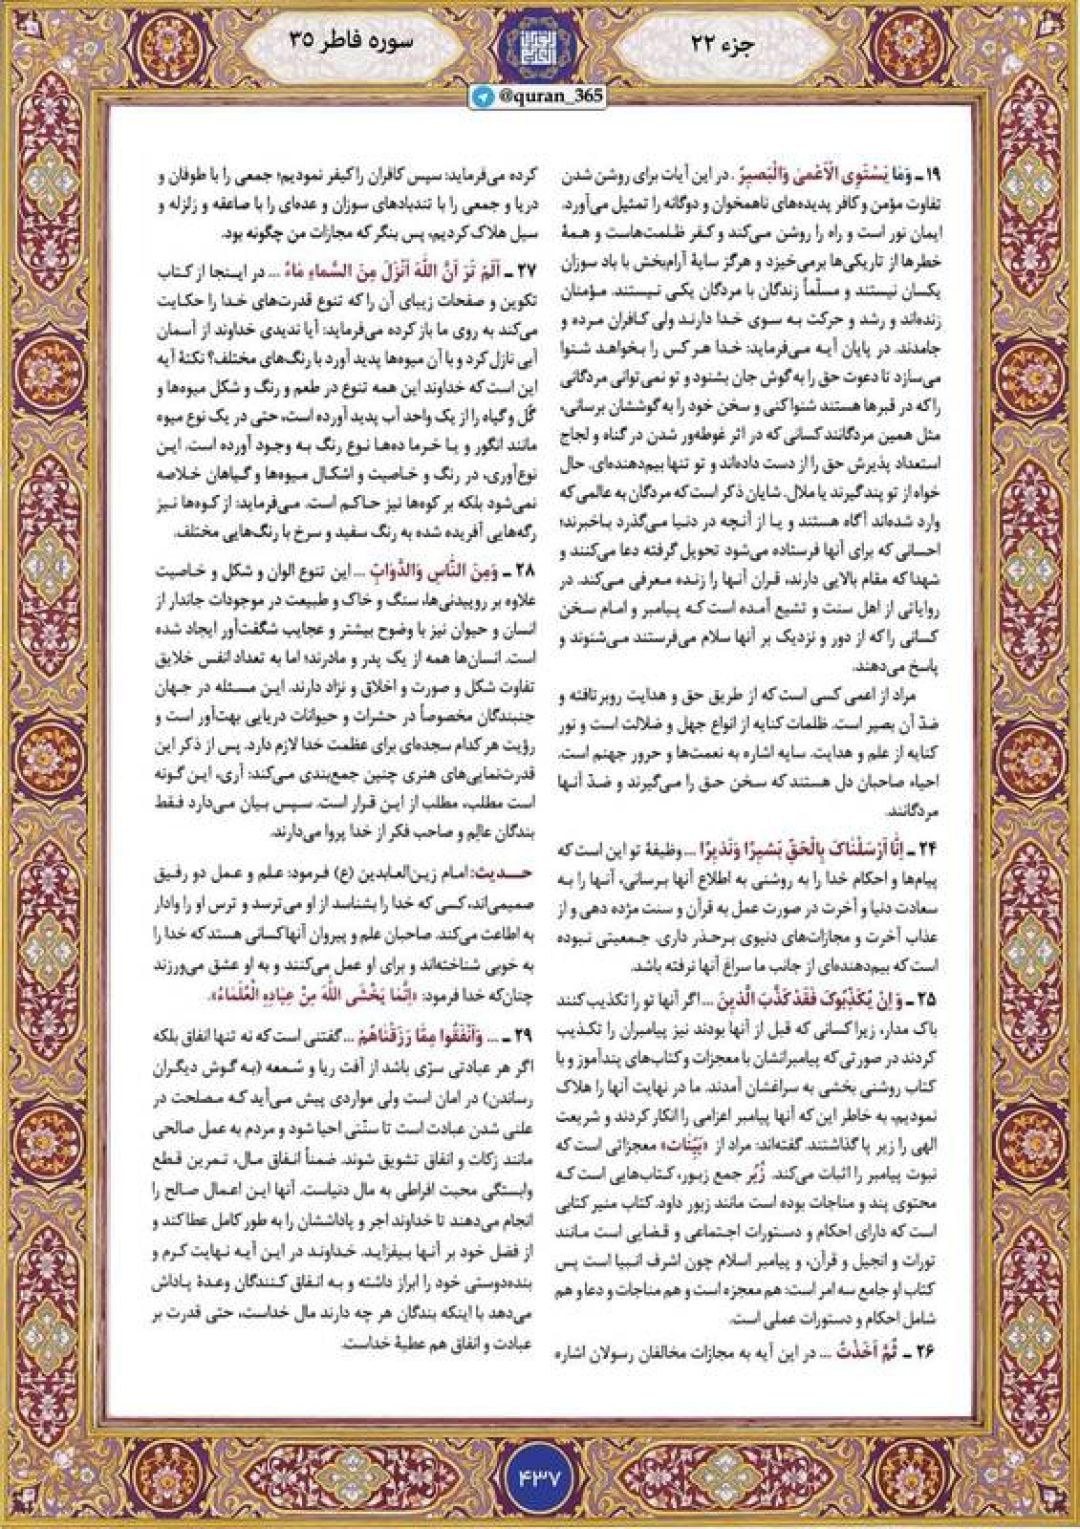 جزء ۲۲
سوره فاطر ۳۵
@quran_365
۱۹ـ وَمَا يَسْتَوِى الْاَعْمىٰ وَالْبَصِيرُ . در این آیات برای روشن شدن
تفاوت مؤمن و کافر پدیده‌های ناهمخوان و دوگانه را تمثیل می‌آورد.
ایمان نور است و راه را روشن می‌کند و کفر ظلمت‌هاست و همهٔ
خطرها از تاریکی‌ها برمی‌خیزد و هرگز سایهٔ آرام‌بخش با باد سوزان
یکسان نیستند و مسلّماً زندگان با مردگان یکی نیستند. مؤمنان
زنده‌اند و رشد و حرکت به سوی خدا دارند ولی کافران مرده و
جامدند. در پایان آیه می‌فرماید: خدا هر کس را بخواهد شنوا
می‌سازد تا دعوت حق را به گوش جان بشنود و تو نمی‌توانی مردگانی
را که در قبرها هستند شنوا کنی و سخن خود را به گوششان برسانی،
مثل همین مردگانند کسانی که در اثر غوطه‌ور شدن در گناه و لجاج
استعداد پذیرش حق را از دست داده‌اند و تو تنها بیم‌دهنده‌ای. حال
خواه از تو پند گیرند یا ملال. شایان ذکر است که مردگان به عالمی که
وارد شده‌اند آگاه هستند و یا از آنچه در دنیا می‌گذرد باخبرند؛
احسانی که برای آنها فرستاده می‌شود تحویل گرفته دعا می‌کنند و
شهدا که مقام بالایی دارند، قرآن آنها را زنده معرفی می‌کند. در
روایاتی از اهل سنت و تشیع آمده است که پیامبر و امام سخن
کسانی را که از دور و نزدیک بر آنها سلام می‌فرستند می‌شنوند و
پاسخ می‌دهند.
مراد از اعمی کسی است که از طریق حق و هدایت روبرتافته و
ضدّ آن بصیر است. ظلمات کنایه از انواع جهل و ضلالت است و نور
کنایه از علم و هدایت. سایه اشاره به نعمت‌ها و حرور جهنم است.
احیاء صاحبان دل هستند که سخن حق را می‌گیرند و ضدّ آنها
مردگانند.
۲۴ـ اِنّٰا اَرْسَلْنٰاكَ بِالْحَقِّ بَشيرًا وَنَذيرًا ... وظیفهٔ تو این است که
پیام‌ها و احکام خدا را به روشنی به اطلاع آنها برسانی، آنها را به
سعادت دنیا و آخرت در صورت عمل به قرآن و سنت مژده دهی و از
عذاب آخرت و مجازات‌های دنیوی برحذر داری. جمعیتی نبوده
است که بیم‌دهنده‌ای از جانب ما سراغ آنها نرفته باشد.
۲۵ـ وَ اِنْ يُكَذِّبُوكَ فَقَدْ كَذَّبَ الَّذينَ ... اگر آنها تو را تکذیب کنند
باک مدار، زیرا کسانی که قبل از آنها بودند نیز پیامبران را تکذیب
کردند در صورتی که پیامبرانشان با معجزات و کتاب‌های پندآموز و با
کتاب روشنی بخشی به سراغشان آمدند. ما در نهایت آنها را هلاک
نمودیم، به خاطر این که آنها پیامبر اعزامی را انکار کردند و شریعت
الهی را زیر پا گذاشتند. گفته‌اند: مراد از «بَيِّنات» معجزاتی است که
نبوت پیامبر را اثبات می‌کند. زُبُر جمع زبور، کتاب‌هایی است که
محتوی پند و مناجات بوده است مانند زبور داود. کتاب منیر کتابی
است که دارای احکام و دستورات اجتماعی و قضایی است مانند
تورات و انجیل و قرآن، و پیامبر اسلام چون اشرف انبیا است پس
کتاب او جامع سه امر است: هم معجزه است و هم مناجات و دعا و هم
شامل احکام و دستورات عملی است.
۲۶ ـ ثُمَّ اَخَذْتُ ... در این آیه به مجازات مخالفان رسولان اشاره
کرده می‌فرماید: سپس کافران را کیفر نمودیم؛ جمعی را با طوفان و
دریا و جمعی را با تندبادهای سوزان و عده‌ای را با صاعقه و زلزله و
سیل هلاک کردیم، پس بنگر که مجازات من چگونه بود.
۲۷ ـ اَلَمْ تَرَ اَنَّ اللّٰهَ اَنْزَلَ مِنَ السَّمٰاءِ مٰاءً ... در اینجا از کتاب
تکوین و صفحات زیبای آن را که تنوع قدرت‌های خدا را حکایت
می‌کند به روی ما باز کرده می‌فرماید: آیا ندیدی خداوند از آسمان
آبی نازل کرد و با آن میوه‌ها پدید آورد با رنگ‌های مختلف؟ نکتهٔ آیه
این است که خداوند این همه تنوع در طعم و رنگ و شکل میوه‌ها و
گُل و گیاه را از یک واحد آب پدید آورده است، حتی در یک نوع میوه
مانند انگور و یا خرما ده‌ها نوع رنگ به وجود آورده است. این
نوع‌آوری، در رنگ و خاصیت و اشکال میوه‌ها و گیاهان خلاصه
نمی‌شود بلکه بر کوه‌ها نیز حاکم است. می‌فرماید: از کوه‌ها نیز
رگه‌هایی آفریده شده به رنگ سفید و سرخ با رنگ‌هایی مختلف.
۲۸ ـ وَمِنَ النّٰاسِ وَالدَّوٰابِّ ... این تنوع الوان و شکل و خاصیت
علاوه بر روییدنی‌ها، سنگ و خاک و طبیعت در موجودات جاندار از
انسان و حیوان نیز با وضوح بیشتر و عجایب شگفت‌آور ایجاد شده
است. انسان‌ها همه از یک پدر و مادرند؛ اما به تعداد انفس خلایق
تفاوت شکل و صورت و اخلاق و نژاد دارند. این مسئله در جهان
جنبندگان مخصوصاً در حشرات و حیوانات دریایی بهت‌آور است و
رؤیت هر کدام سجده‌ای برای عظمت خدا لازم دارد. پس از ذکر این
قدرت‌نمایی‌های هنری چنین جمع‌بندی می‌کند: آری، این گونه
است مطلب، مطلب از این قرار است. سپس بیان می‌دارد فقط
بندگان عالِم و صاحب فکر از خدا پروا می‌دارند.
حدیث: امام زین‌العابدین (ع) فرمود: علم و عمل دو رفیق
صمیمی‌اند، کسی که خدا را بشناسد از او می‌ترسد و ترس او را وادار
به اطاعت می‌کند. صاحبان علم و پیروان آنها کسانی هستند که خدا را
به خوبی شناخته‌اند و برای او عمل می‌کنند و به او عشق می‌ورزند
چنان‌که خدا فرمود: «اِنَّمٰا يَخْشَى اللّٰهَ مِنْ عِبٰادِهِ الْعُلَمٰاءُ».
۲۹ ـ ... وَاَنْفَقُوا مِمّٰا رَزَقْنٰاهُمْ ... گفتنی است که نه تنها انفاق بلکه
اگر هر عبادتی سرّی باشد از آفت ریا و سُمعه (به گوش دیگران
رساندن) در امان است ولی مواردی پیش می‌آید که مصلحت در
علنی شدن عبادت است تا سنّتی احیا شود و مردم به عمل صالحی
مانند زکات و انفاق تشویق شوند. ضمناً انفاق مال، تمرین قطع
وابستگی محبت افراطی به مال دنیاست. آنها این اعمال صالح را
انجام می‌دهند تا خداوند اجر و پاداششان را به طور کامل عطا کند و
از فضل خود بر آنها بیفزاید. خداوند در این آیه نهایت کرم و
بنده‌دوستی خود را ابراز داشته و به انفاق کنندگان وعدهٔ پاداش
می‌دهد با اینکه بندگان هر چه دارند مال خداست، حتی قدرت بر
عبادت و انفاق هم عطیهٔ خداست.
۴۳۷